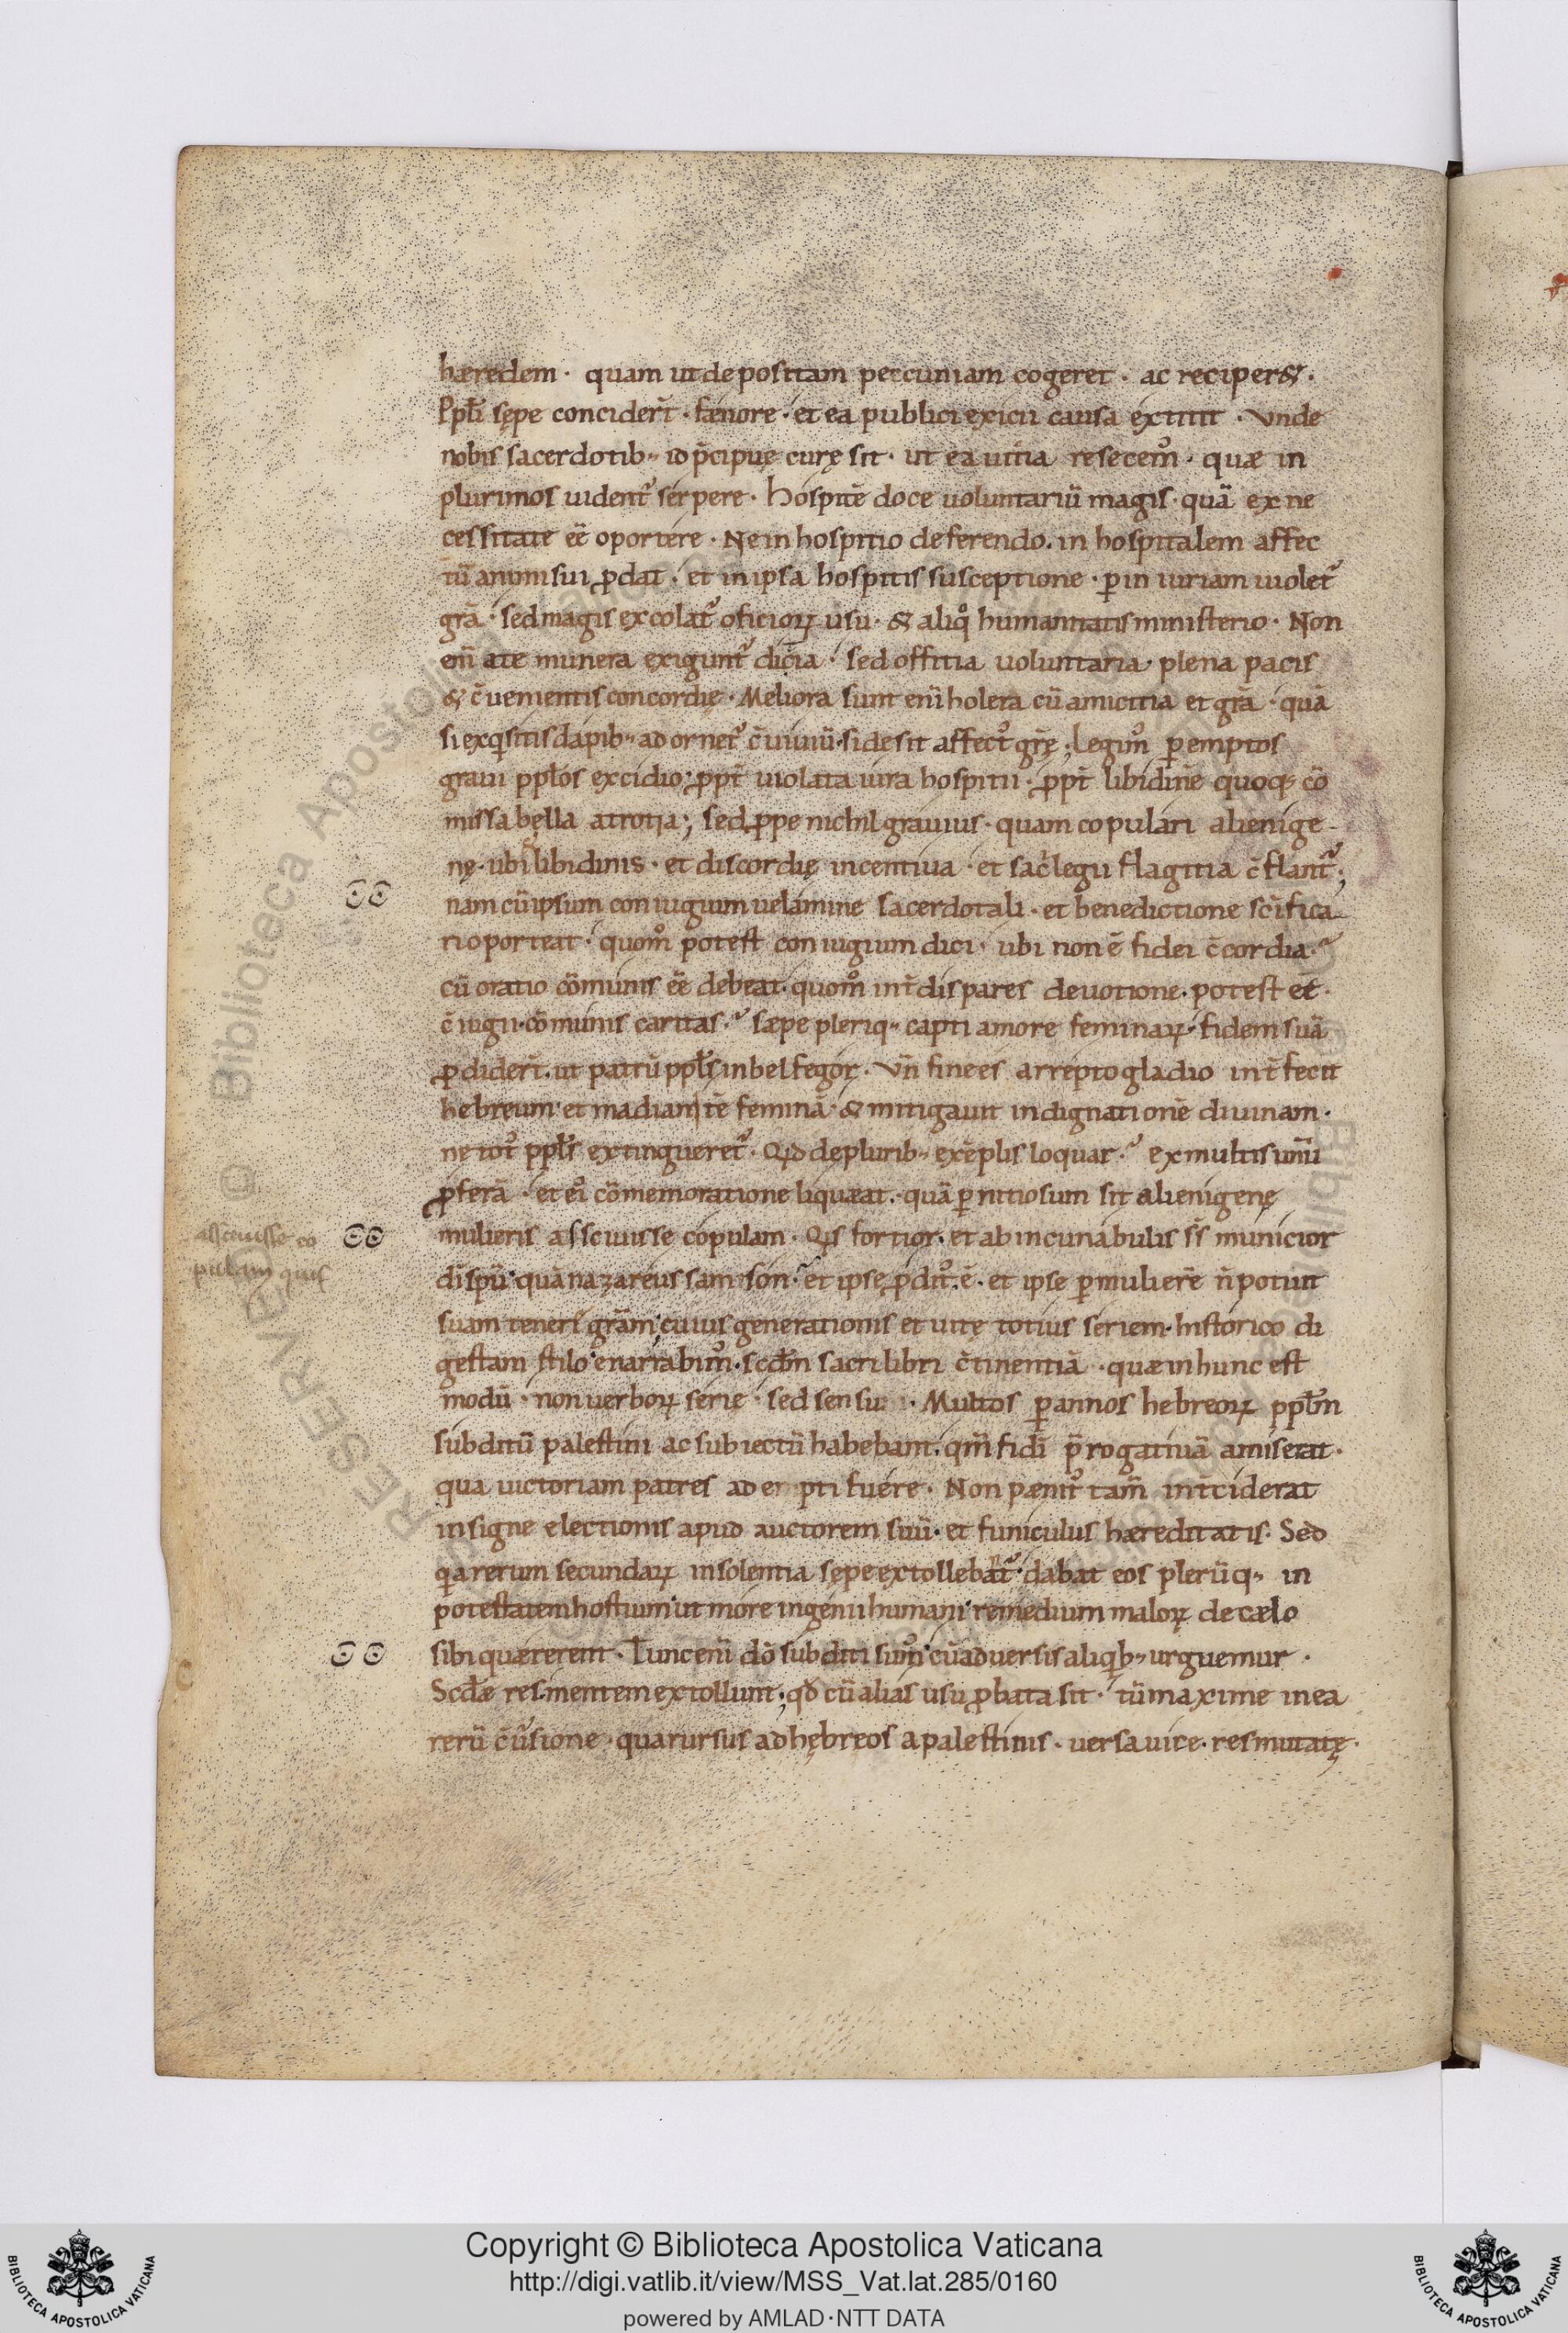 hæredem · quam ut depositam peccuniam cogeret · ac reciper& ·
Ppłi sępe concider̄t · fænore · et ea publici exicii causa extitit · Vnde
nobis sacerdotib; id p̄cipuę curę sit · ut ea uitia resecem᷒ · quæ in
plurimos uident᷒ serpere · hospitē doce uoluntariū magis · quā ex ne
cessitate eē oportere · Ne in hospitio deferendo · in hospitalem affec
tū animi sui ꝓdat · et in ipsa hospitis susceptione · ꝑ iniuriam uiolet᷒
gr̄a · sed magis excolat᷒ oficioꝝ usu · & aliqͦ humanitatis ministerio · Non
eni̅ a te munera exigunt᷒ diciā · sed offitia uoluntaria · plena pacis
& c̄uenientis concordię · Meliora sunt eni̅ holera cū amicitia et gr̄a · quā
si exqͥsitis dapib; adornet᷒ c̄uiuiū · si desit affect᷒ gr̄ę ; Legim᷒ ꝑemptos
graui ppłos excidio · ꝓpt̄ uiolata iura hospitii · ꝓpt̄ libidinē quoq; cō
missa bella atrotia ; sed ꝓpe nichil grauius · quam copulari alienige
nę · ubi libidinis · et discordię incentiua · et sacͥlegii flagitia c̄flant᷒ ;
nam cū ipsum coniugium uelamine sacerdotali · et benedictione sc̄ifica
ri oporteat · quomͦ potest coniugium dici · ubi non ē fidei c̄cordia ?
cū oratio cōmunis eē debeat · quomͦ int̄ dispares deuotione · potest eē ·
c̄iugii · cōmunis caritas ? Sæpe pleriq; capti amore feminaꝝ · fidem suā
ꝓdider̄t · ut patrū ppłs in belfegor · Vn̄ finees arrepto gladio int̄fecit
hebreum · et madianitē feminā · & mitigauit indignationē diuinam ·
ne tot᷒ ppłs extingueret᷒ · Qͥd de plurib; exēplis loquar ? ex multis unū
ꝓferā · et ei᷒ cōmemoratione liqueat · quā ꝑnitiosum sit alienigenę
mulieris assciuisse copulam · Qͥs fortior · et ab incunabulis sͥs municior
di̅ spū · quā nazareus samson ? et ipse ꝓdit᷒ ē · et ipse ꝑ mulierē n̄ potuit
suam teneri gr̄am ; cuius generationis et uitę totius seriem · historico di
gestam stilo enarrabim᷒ · scd̄m sacri libri c̄tinentiā · quæ in hunc est
modū · non uerboꝝ serie · sed sensu · Multos ꝑ annos hebreoꝝ ppłm
subditū palestini ac subiectū habebant · qm̄ fidi̅ p̄rogatiuā amiserat ·
qua uictoriam patres adempti fuere · Non pænit᷒ tam̄ int̄ciderat
insigne electionis apud auctorem suū · et funiculus hæreditatis · Sed
qͥa rerum secundaꝝ insolentia sępe extollebat᷒ · dabat eos plerūq; in
potestatem hostium · ut more ingenii humani · remedium maloꝝ de cælo
sibi quærerent · Tunc eni̅ dō subditi sum᷒ · cū aduersis aliqͥb; urguemur ·
Scd̄æ res mentem extollunt ; qd̄ cū alias usu ꝓbata sit · tū maxime in ea
rerū c̄u᷒sione · qua rursus ad hębreos a palestinis · uersa uice · res mutatę ·
assciuisse co
pulam quis
Copyright © Biblioteca Apostolica Vaticana
http://digi.vatlib.it/view/MSS_Vat.lat.285/0160
powered by AMLAD·NTT DATA
BIBLIOTECA APOSTOLICA VATICANA
BIBLIOTECA APOSTOLICA VATICANA